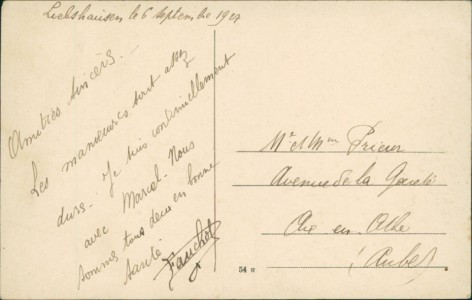 le 6 septembre 1927
Amitiés sincères. —
Les manœuvres sont assez
dures. Je suis continuellement
avec Marcel. Nous
sommes tous deux en bonne
santé.
Fauchot
Mr et Mme Prieur
Avenue de la Gare
Aix-en-Othe
(Aube)
54